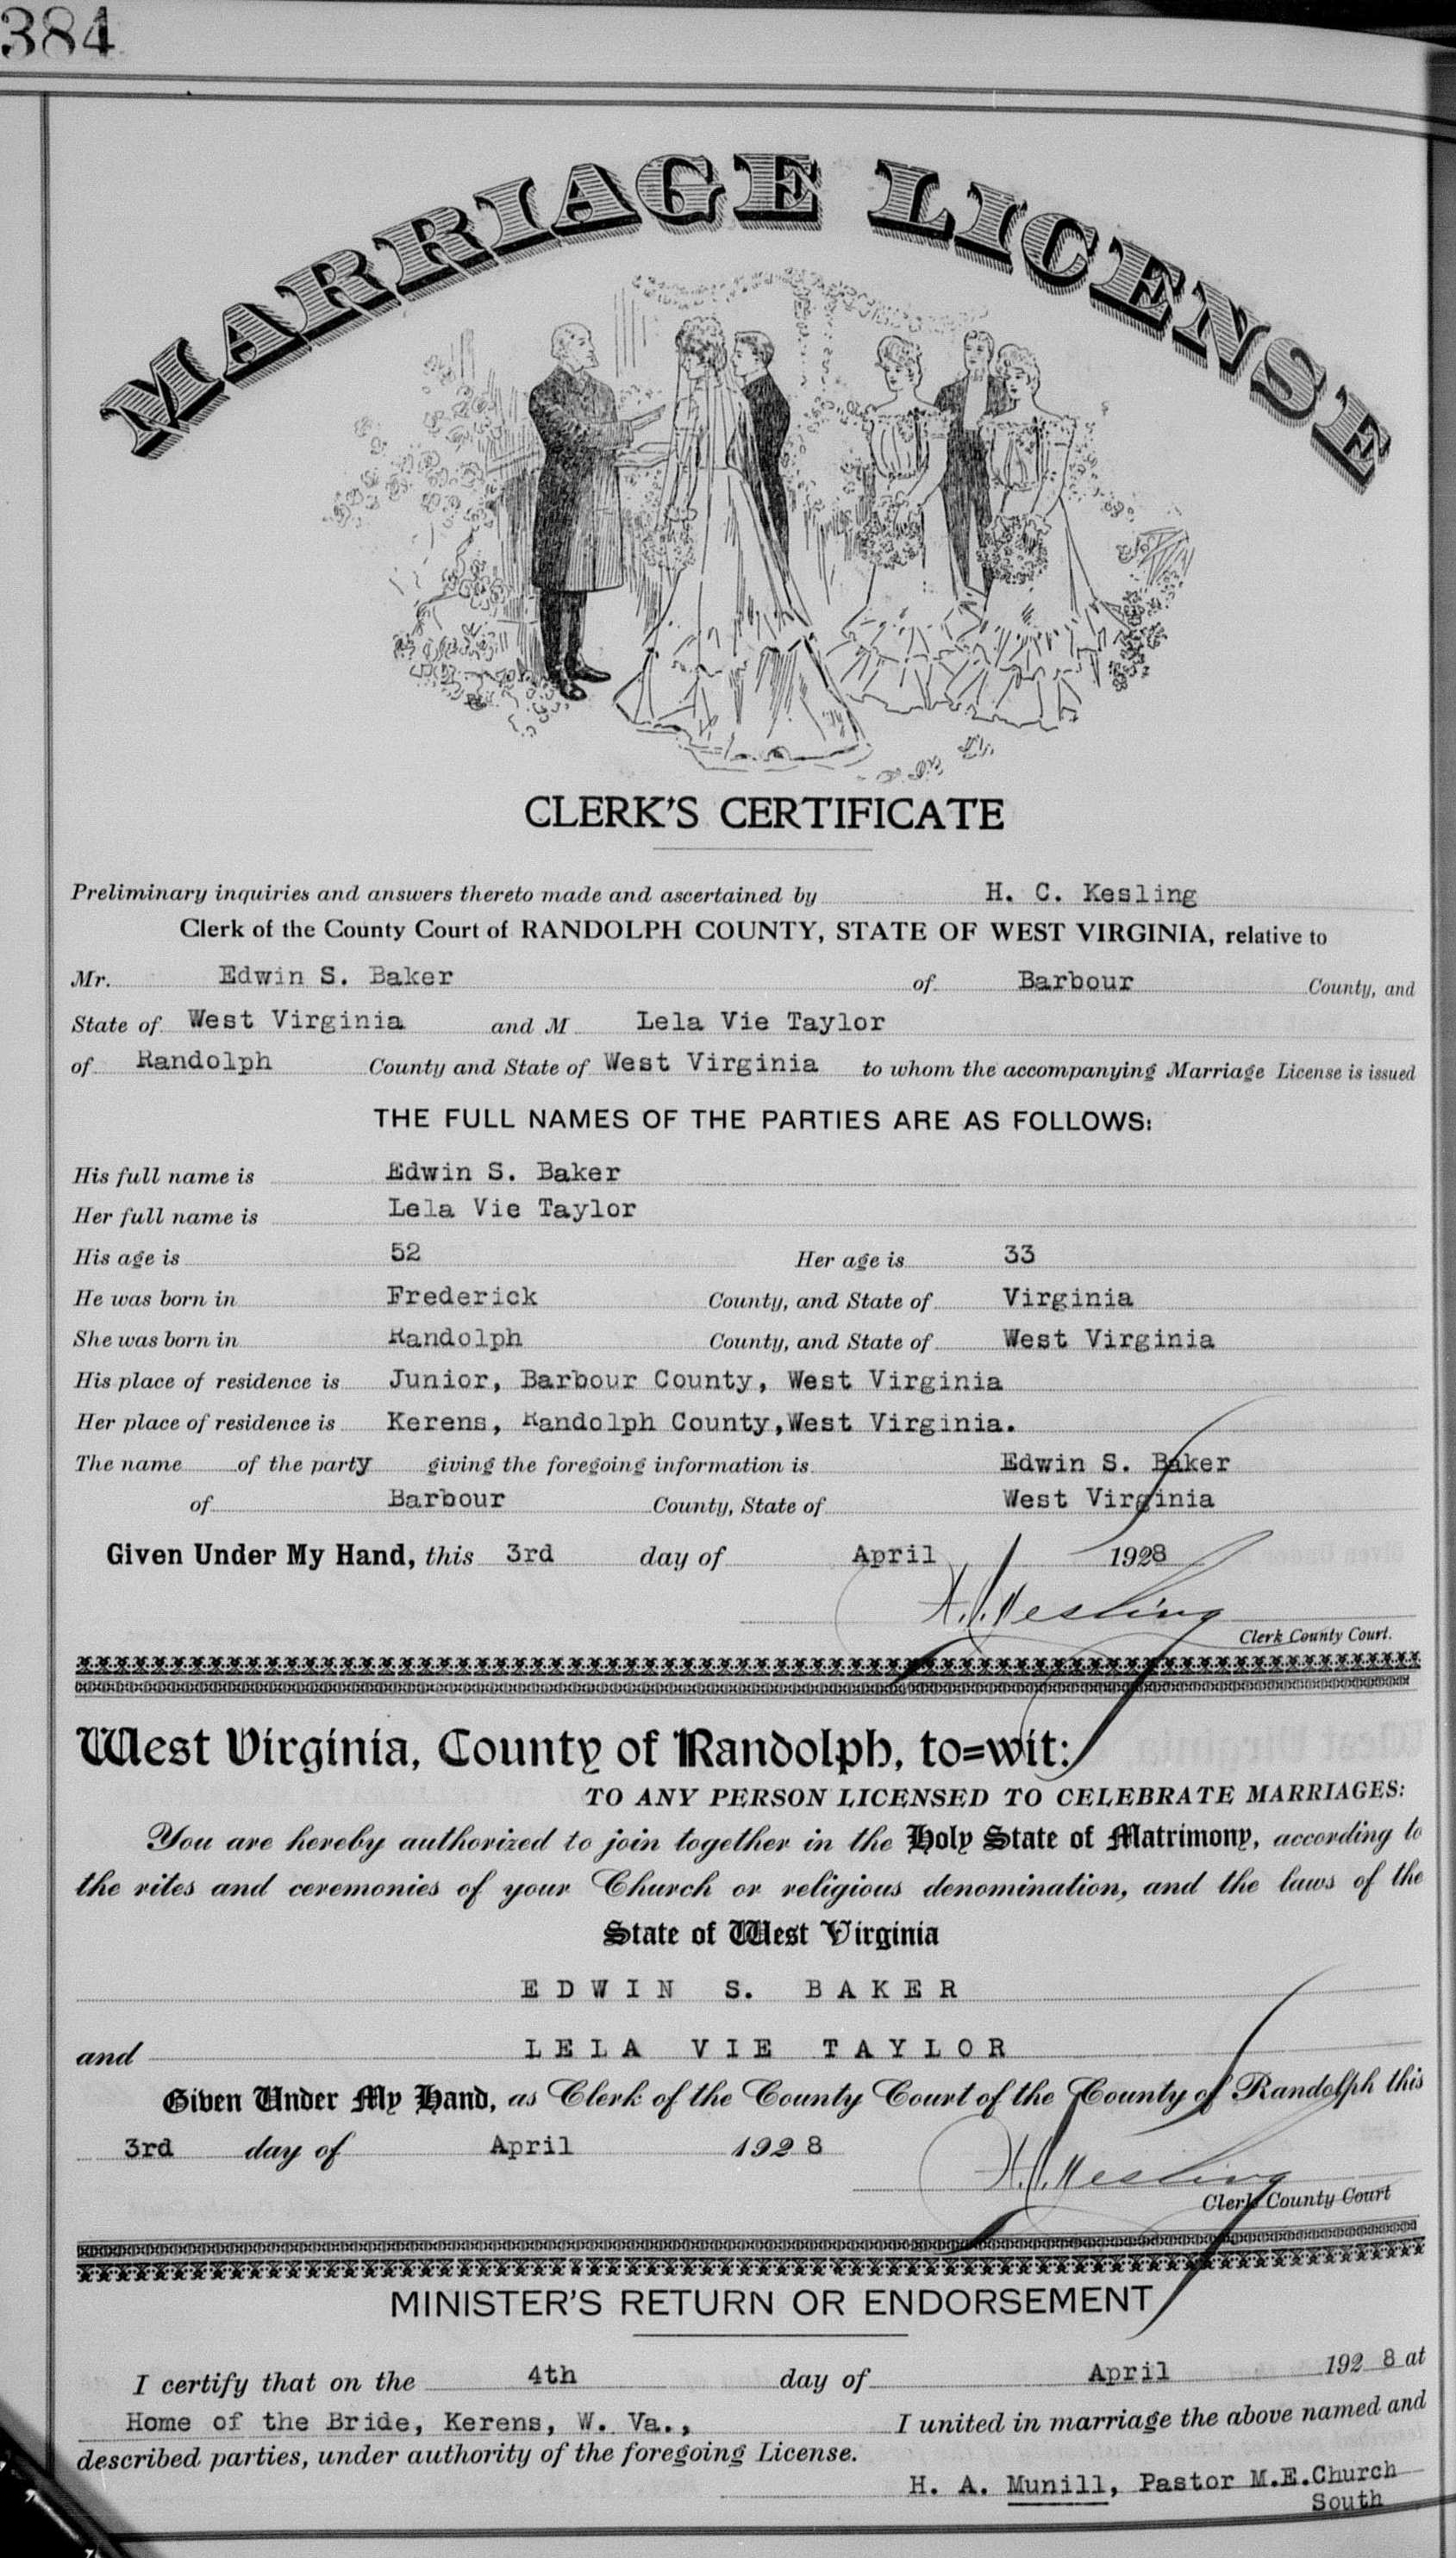 384
MARRIAGE LICENSE
CLERK'S CERTIFICATE
Preliminary inquiries and answers thereto made and ascertained by H. C. Kesling
Clerk of the County Court of RANDOLPH COUNTY, STATE OF WEST VIRGINIA, relative to
Mr. Edwin S. Baker of Barbour County, and
State of West Virginia and M Lela Vie Taylor
of Randolph County and State of West Virginia to whom the accompanying Marriage License is issued
THE FULL NAMES OF THE PARTIES ARE AS FOLLOWS:
His full name is Edwin S. Baker
Her full name is Lela Vie Taylor
His age is 52 Her age is 33
He was born in Frederick County, and State of Virginia
She was born in Randolph County, and State of West Virginia
His place of residence is Junior, Barbour County, West Virginia
Her place of residence is Kerens, Randolph County,West Virginia.
The name of the party giving the foregoing information is Edwin S. Baker
of Barbour County, State of West Virginia
Given Under My Hand, this 3rd day of April 1928
H. C. Kesling
Clerk County Court.
West Virginia, County of Randolph, to=wit:
TO ANY PERSON LICENSED TO CELEBRATE MARRIAGES:
You are hereby authorized to join together in the Holy State of Matrimony, according to
the rites and ceremonies of your Church or religious denomination, and the laws of the
State of West Virginia
EDWIN S. BAKER
and LELA VIE TAYLOR
Given Under My Hand, as Clerk of the County Court of the County of Randolph this
3rd day of April 1928
H. C. Kesling
Clerk County Court
MINISTER'S RETURN OR ENDORSEMENT
I certify that on the 4th day of April 192 8 at
Home of the Bride, Kerens, W. Va., I united in marriage the above named and
described parties, under authority of the foregoing License.
H. A. Munill, Pastor M.E.Church
South